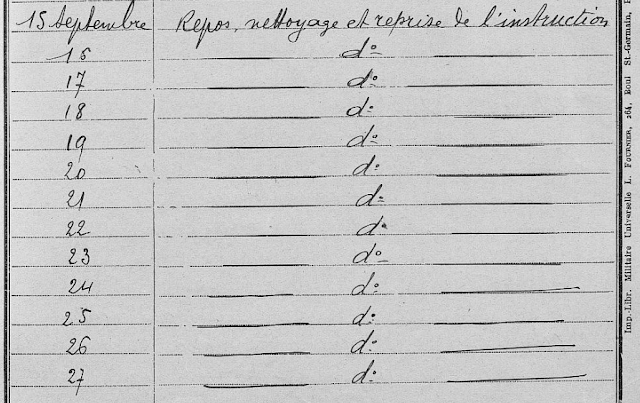 15 Septembre Repos, nettoyage et reprise de l'instruction
16 — do —
17 — do —
18 — do —
19 — do —
20 — do —
21 — do —
22 — do —
23 — do —
24 — do —
25 — do —
26 — do —
27 — do —
Imp.-Libr. Militaire Universelle L. FOURNIER, 264, Boul St-Germain,